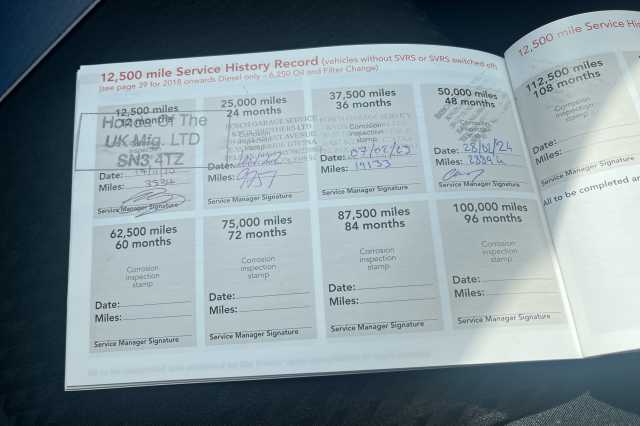 12,500 mile Service History Record (vehicles without SVRS or SVRS switched off)
(see page 29 for 2018 onwards Diesel only - 6,250 Oil and Filter Change)
12,500 miles
12 months
Honda Of The
UK Mfg. LTD
SN3 4TZ
Date:
Miles: 3534
Service Manager Signature
25,000 miles
24 months
BOSCH GARAGE SERVICE
Date:
Miles: 9757
Service Manager Signature
37,500 miles
36 months
Corrosion
inspection
stamp
Date: 07/02/23
Miles: 19133
Service Manager Signature
50,000 miles
48 months
Corrosion
inspection
stamp
Date: 28/02/24
Miles:
Service Manager Signature
62,500 miles
60 months
Corrosion
inspection
stamp
Date:
Miles:
Service Manager Signature
75,000 miles
72 months
Corrosion
inspection
stamp
Date:
Miles:
Service Manager Signature
87,500 miles
84 months
Corrosion
inspection
stamp
Date:
Miles:
Service Manager Signature
100,000 miles
96 months
Corrosion
inspection
stamp
Date:
Miles:
Service Manager Signature
12,500 mile Service His
112,500 miles
108 months
Corrosion
inspection
stamp
Date:
Miles:
Service Manager Signature
All to be completed an